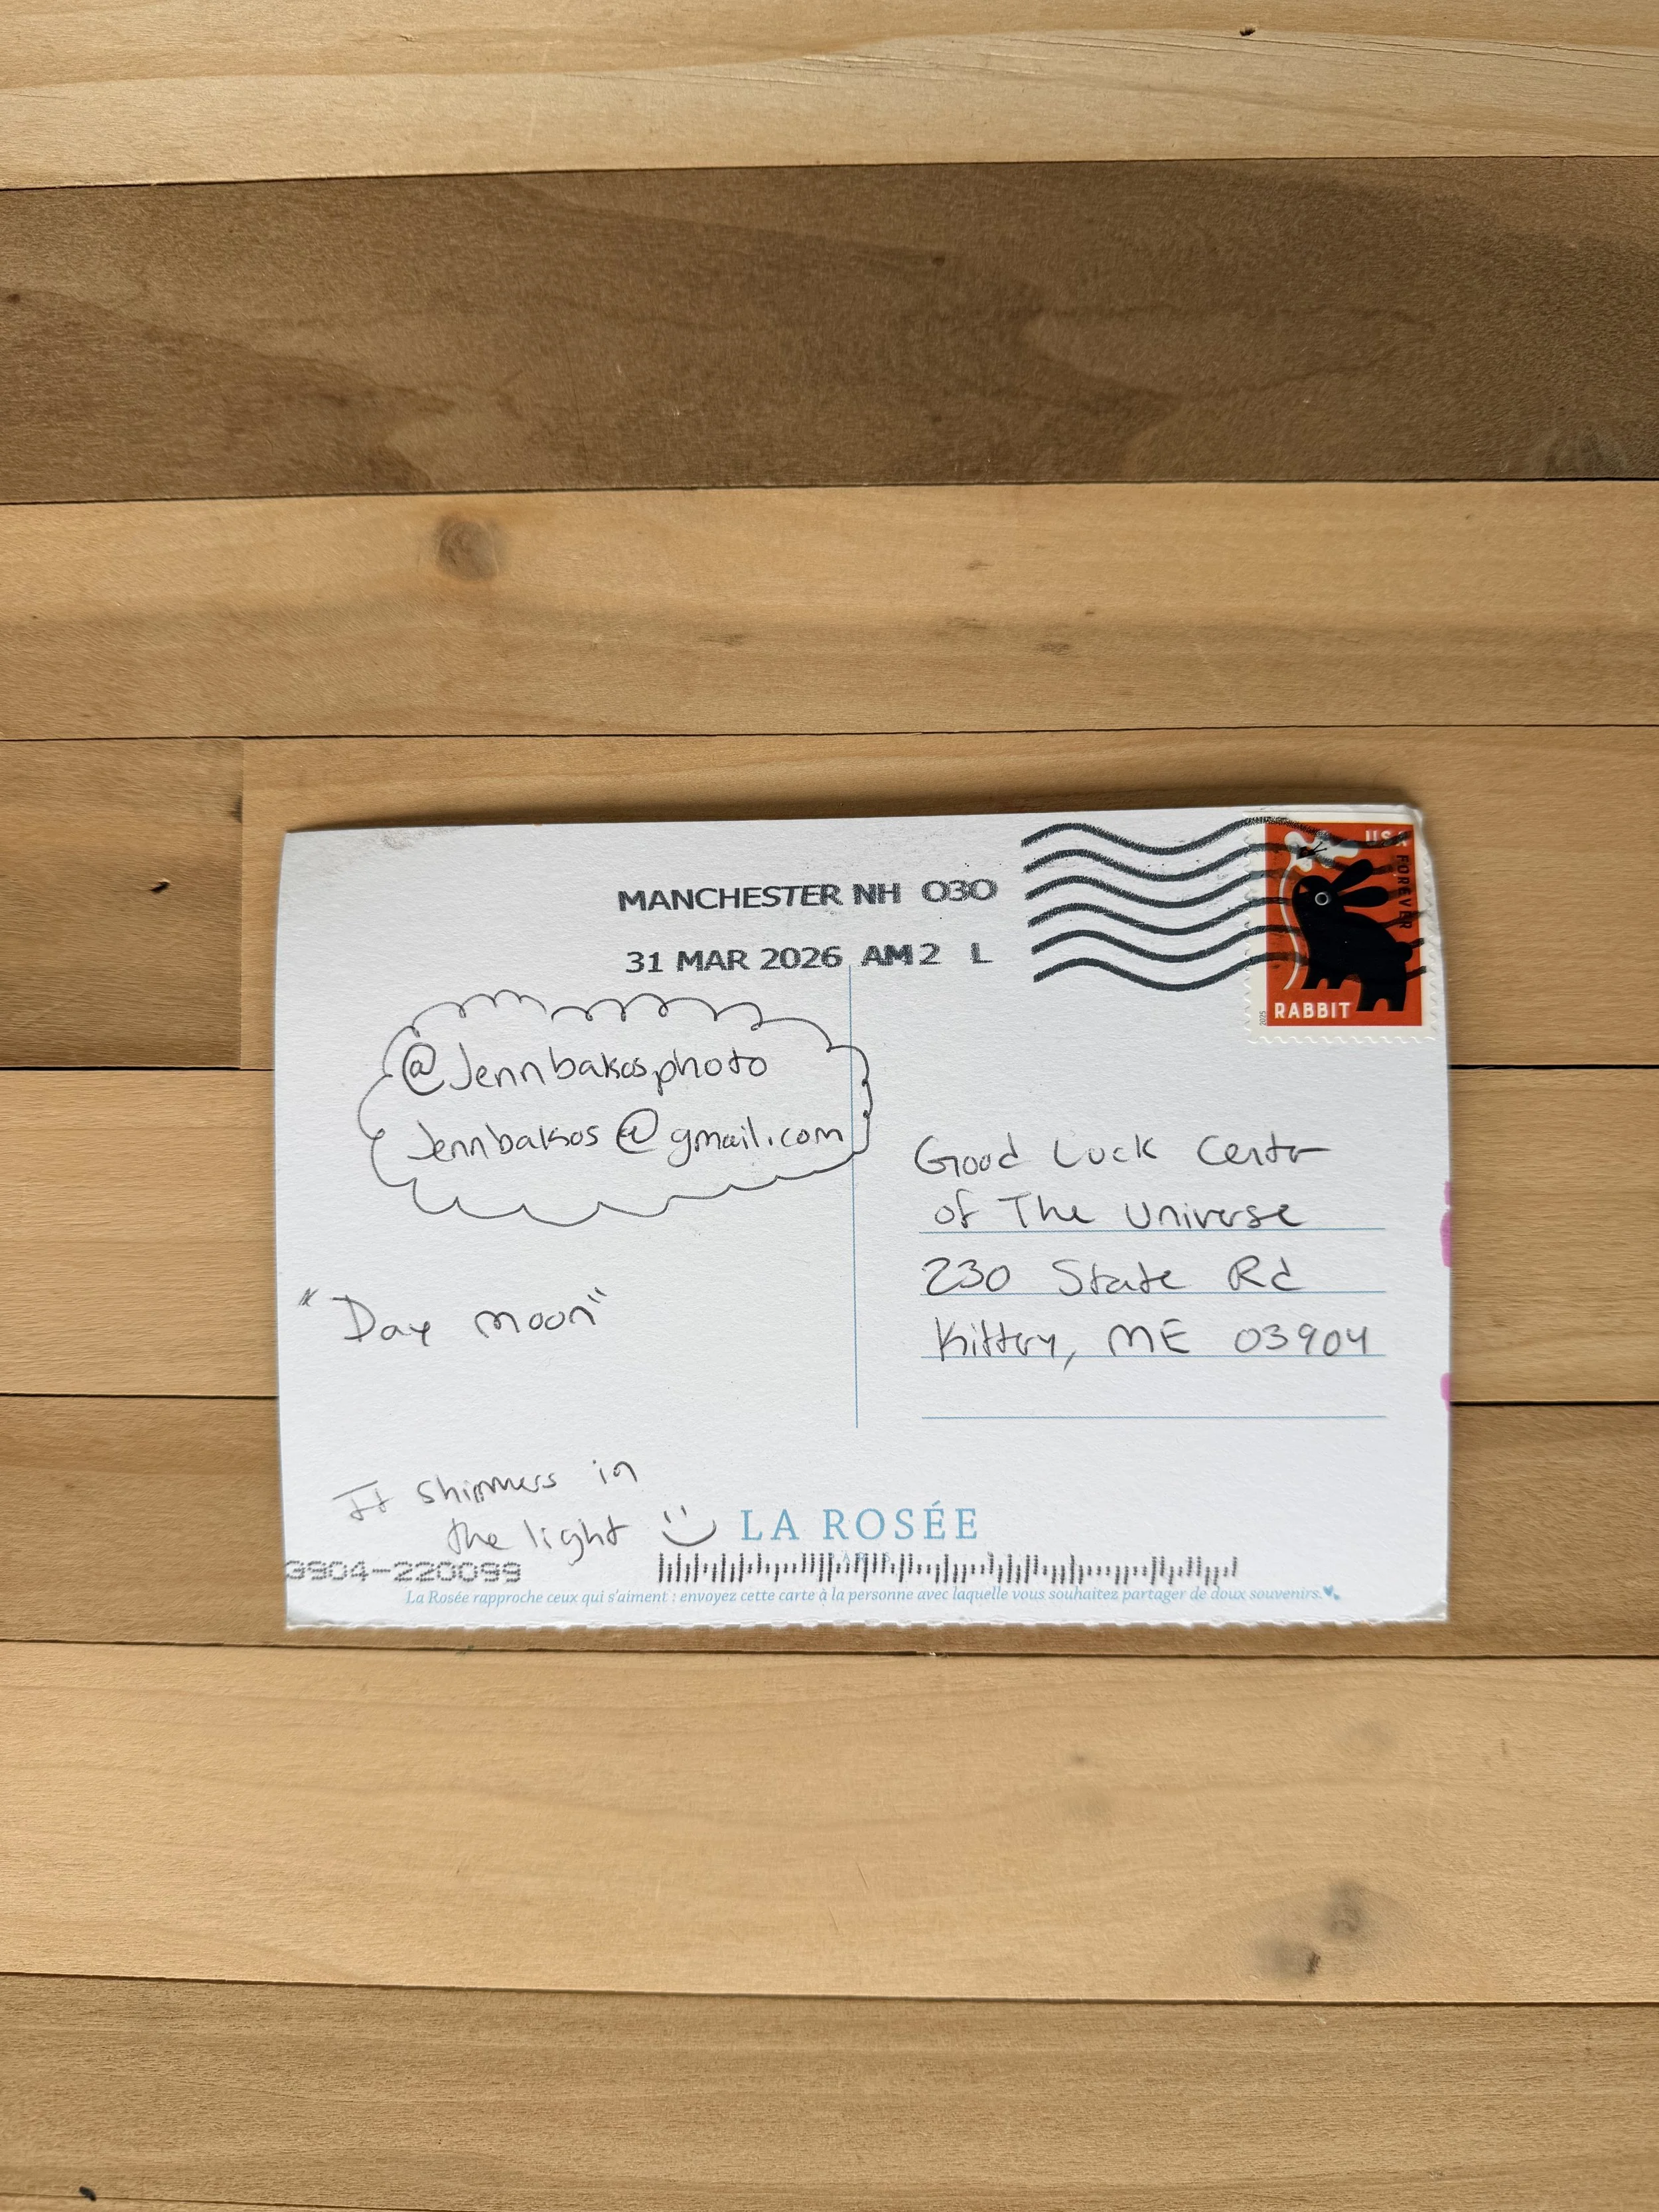 MANCHESTER NH 030
31 MAR 2026 AM 2 L
USA
FOREVER
RABBIT
2025
@Jennbakosphoto
Jennbakos@gmail.com
"Day moon"
It shimmers in
the light
Good Luck Center
of The Universe
230 State Rd
Kittery, ME 03904
LA ROSÉE
PARIS
3904-220099
La Rosée rapproche ceux qui s'aiment : envoyez cette carte à la personne avec laquelle vous souhaitez partager de doux souvenirs.